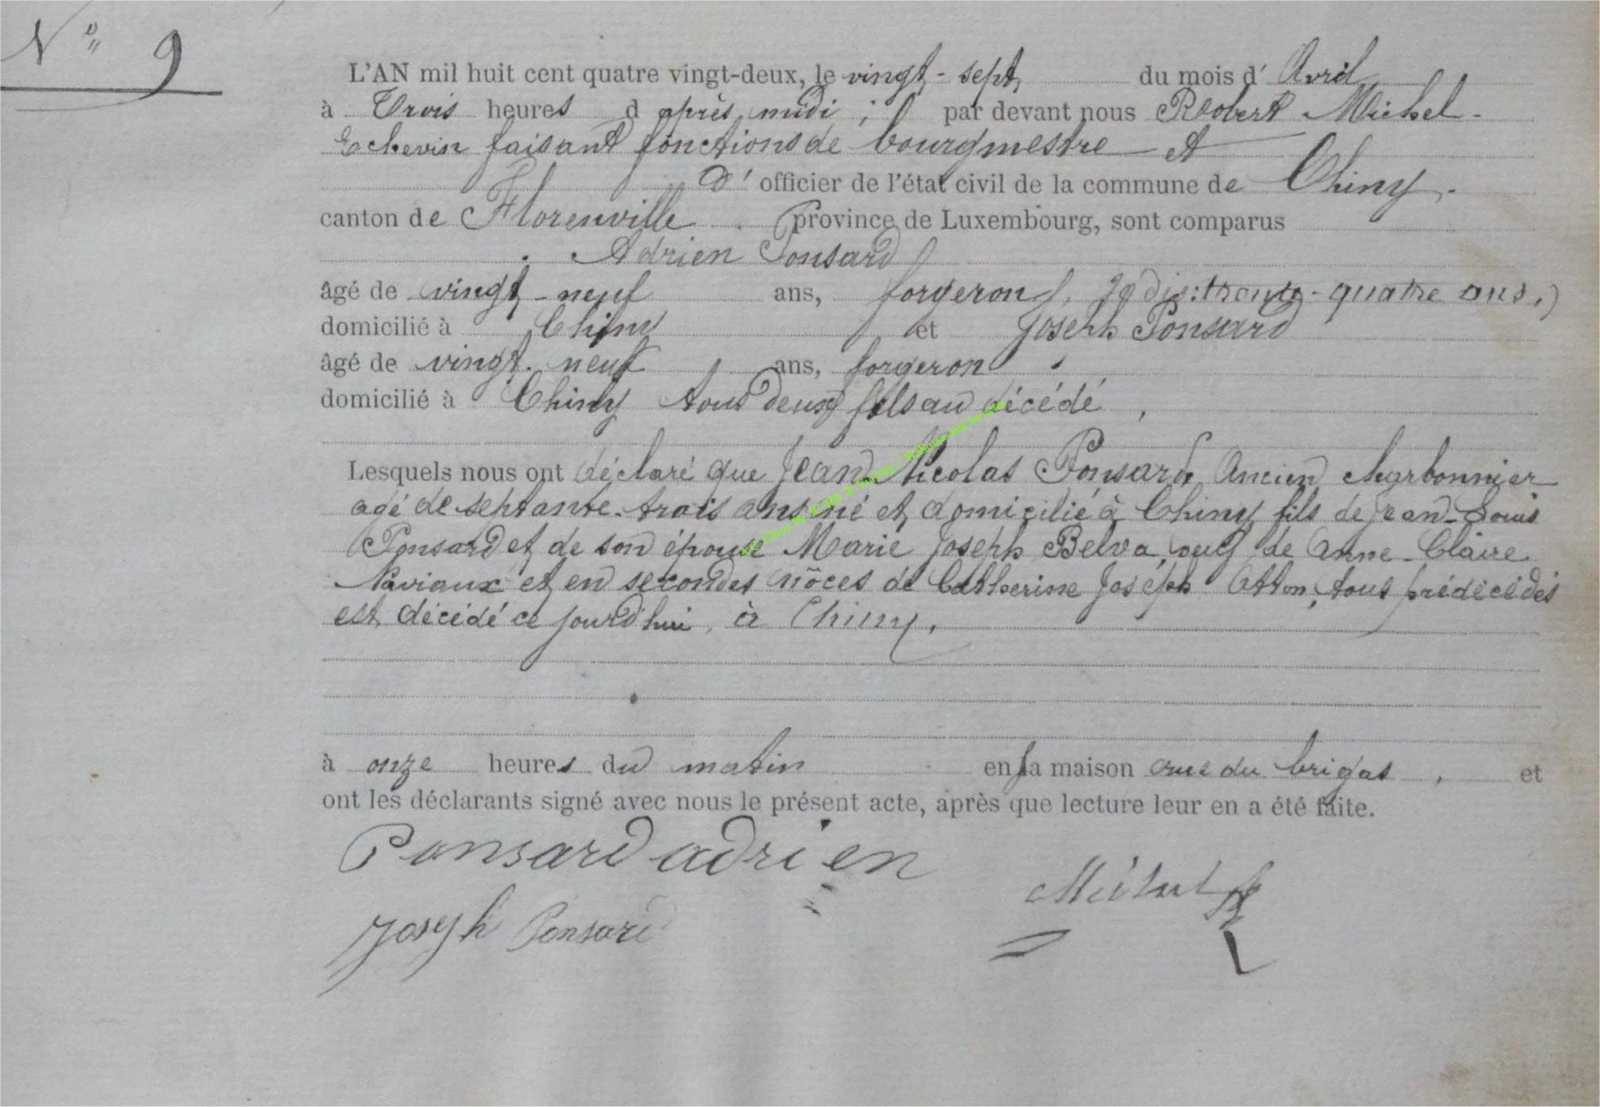 N° 9
L'AN mil huit cent quatre vingt-deux, le vingt-sept du mois d' Avril
à Trois heures d après midi ; par devant nous Robert Michel
Echevin faisant fonctions de bourgmestre et
d' officier de l'état civil de la commune de Chiny
canton de Florenville province de Luxembourg, sont comparus
Adrien Ponsard
âgé de vingt-neuf ans, forgeron (je dis: trente-quatre ans,)
domicilié à Chiny et Joseph Ponsard
âgé de vingt-neuf ans, forgeron
domicilié à Chiny tous deux fils au décédé,
Lesquels nous ont déclaré que Jean Nicolas Ponsard Ancien charbonnier
agé de septante-trois ans né et domicilié à Chiny fils de Jean-Louis
Ponsard et de son épouse Marie Joseph Belva, veuf de Anne-Claire
Naviaux et en secondes nôces de Catherine Joseph Otton, tous prédécédés
est décédé ce jourd'hui, à Chiny,
à onze heures du matin en sa maison rue du brigas, et
ont les déclarants signé avec nous le présent acte, après que lecture leur en a été faite.
Ponsard adrien
Michel R
Joseph Ponsard